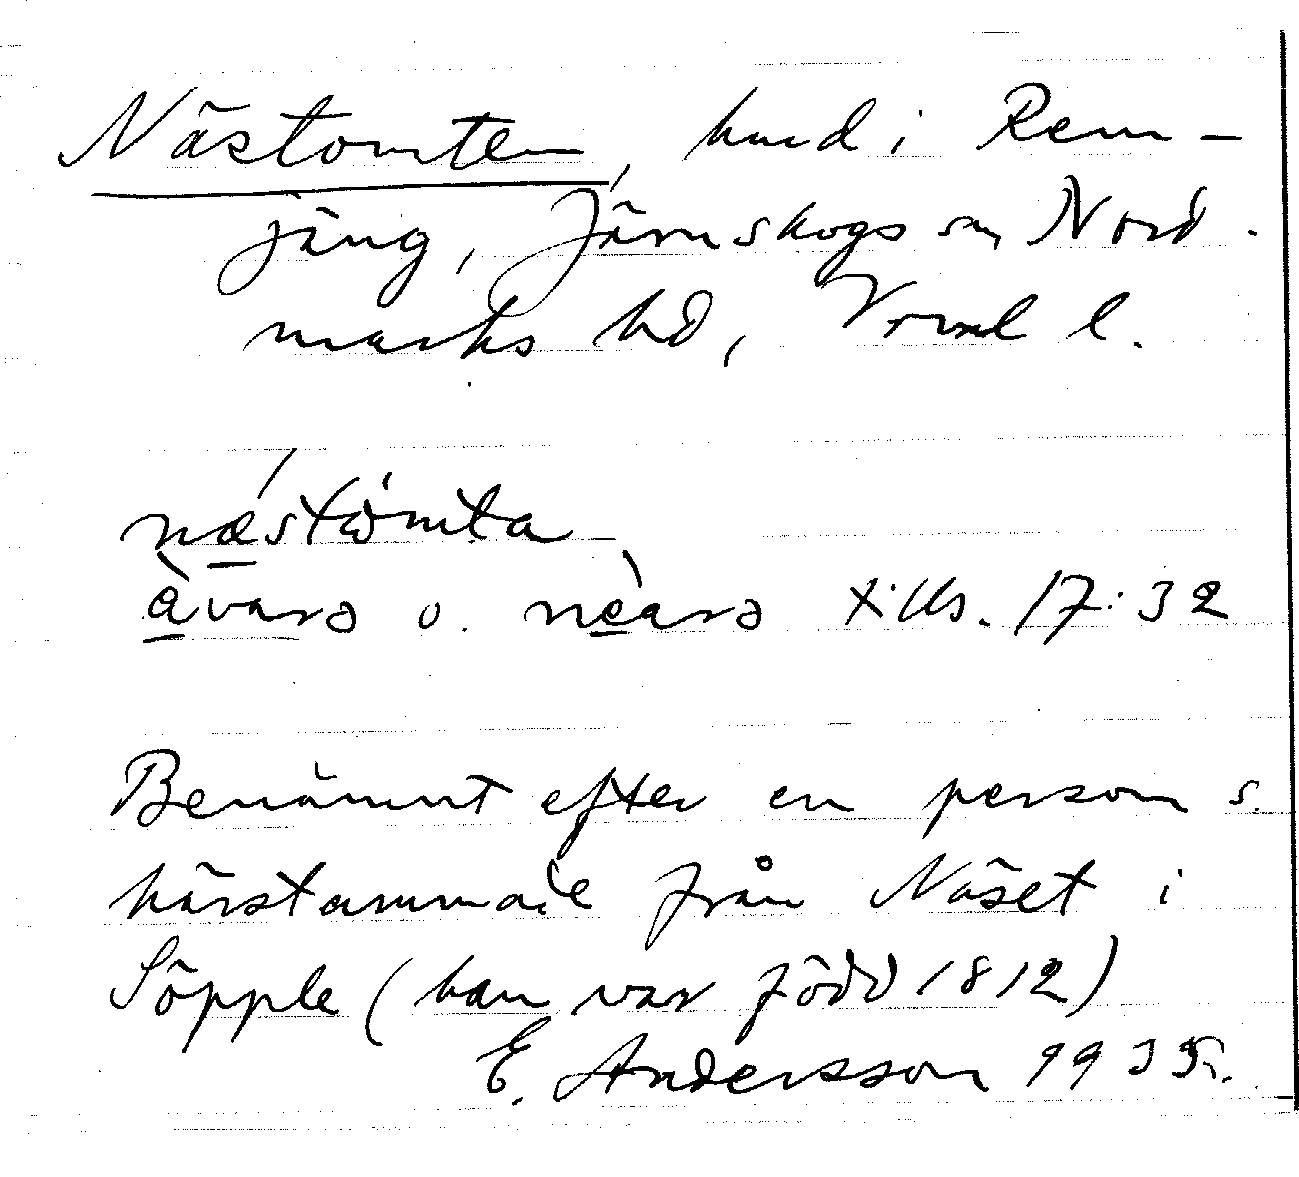 Nästomten, hmd i Rem-
jäng, Järnskogs sn, Nord-
marks hd, Vrml l.
næstòmta
àvarə o. nèarə tills. 17:32
Benämnt efter en person s.
härstammade från Näset i
Söpple (han var född 1812)
E. Andersson 1935.